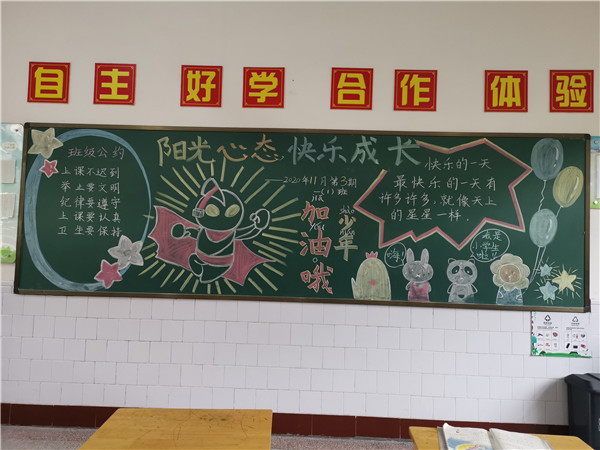 自主 好学 合作 体验
阳光心态 快乐成长
2020年11月第3期
一(1)班
班级公约
上课不迟到
举止要文明
纪律要遵守
上课要认真
卫生要保持
加油哦
少年
快乐的一天
最快乐的一天有
许多许多,就像天上
的星星一样。
嗨!
我是
小学生
啦!